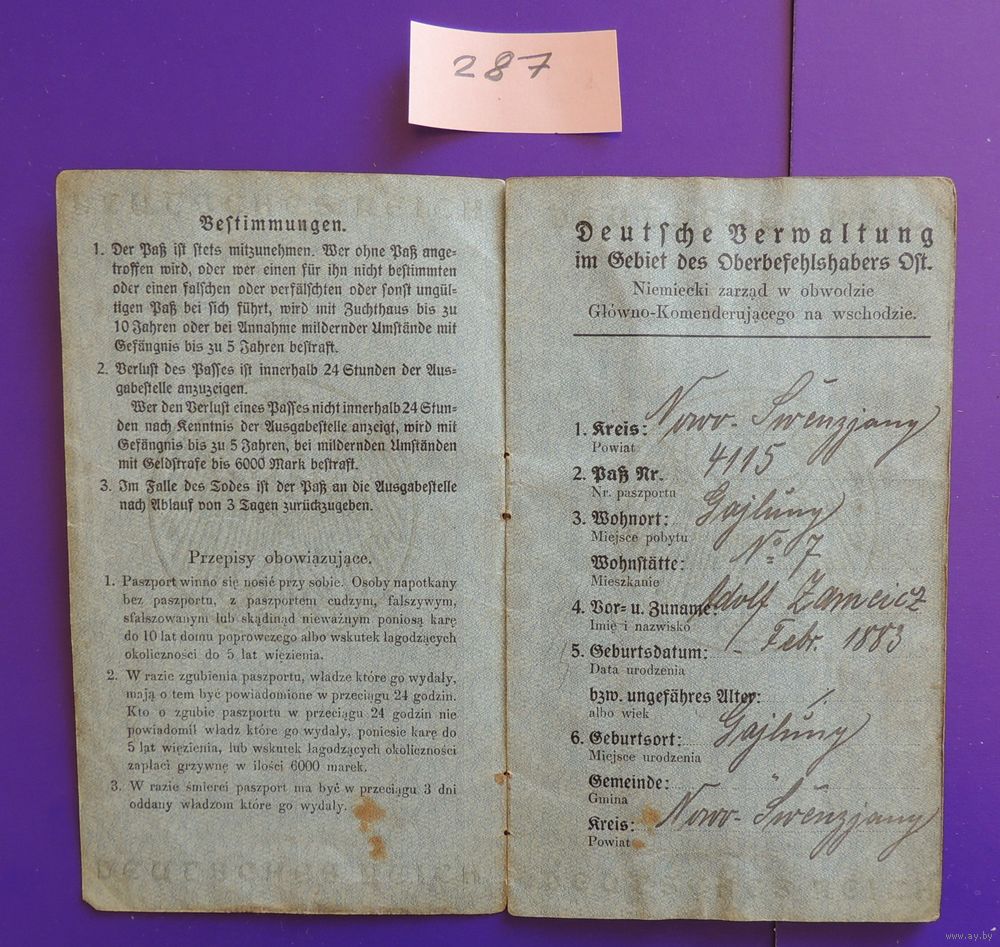 287
Bestimmungen.
1. Der Paß ist stets mitzunehmen. Wer ohne Paß ange-
troffen wird, oder wer einen für ihn nicht bestimmten
oder einen falschen oder verfälschten oder sonst ungül-
tigen Paß bei sich führt, wird mit Zuchthaus bis zu
10 Jahren oder bei Annahme mildernder Umstände mit
Gefängnis bis zu 5 Jahren bestraft.
2. Verlust des Passes ist innerhalb 24 Stunden der Aus-
gabestelle anzuzeigen.
Wer den Verlust eines Passes nicht innerhalb 24 Stun-
den nach Kenntnis der Ausgabestelle anzeigt, wird mit
Gefängnis bis zu 5 Jahren, bei mildernden Umständen
mit Geldstrafe bis 6000 Mark bestraft.
3. Im Falle des Todes ist der Paß an die Ausgabestelle
nach Ablauf von 3 Tagen zurückzugeben.
Przepisy obowiązujące.
1. Paszport winno się nosić przy sobie. Osoby napotkany
bez paszportu, z paszportem cudzym, falszywym,
sfalszowanym lub skądinąd nieważnym poniosą karę
do 10 lat domu poprowczego albo wskutek łagodzących
okoliczności do 5 lat więzienia.
2. W razie zgubienia paszportu, władze które go wydały,
mają o tem być powiadomione w przeciągu 24 godzin.
Kto o zgubie paszportu w przeciągu 24 godzin nie
powiadomił władz które go wydały, poniesie karę do
5 lat więzienia, lub wskutek łagodzących okoliczności
zapłaci grzywnę w ilości 6000 marek.
3. W razie śmierci paszport ma być w przeciągu 3 dni
oddany władzom które go wydały.
Deutsche Verwaltung
im Gebiet des Oberbefehlshabers Ost.
Niemiecki zarząd w obwodzie
Główno-Komenderującego na wschodzie.
1. Kreis: Nowo-Swenzjany
Powiat
2. Paß Nr. 4115
Nr. paszportu
3. Wohnort: Gajluny
Miejsce pobytu
Wohnstätte: No 7
Mieszkanie
4. Vor- u. Zuname: Adolf Zameicz
Imię i nazwisko
5. Geburtsdatum: – Febr. 1883
Data urodzenia
bzw. ungefähres Alter:
albo wiek
6. Geburtsort: Gajluny
Miejsce urodzenia
Gemeinde:
Gmina
Kreis: Nowo-Swenzjany
Powiat
www.ay.by